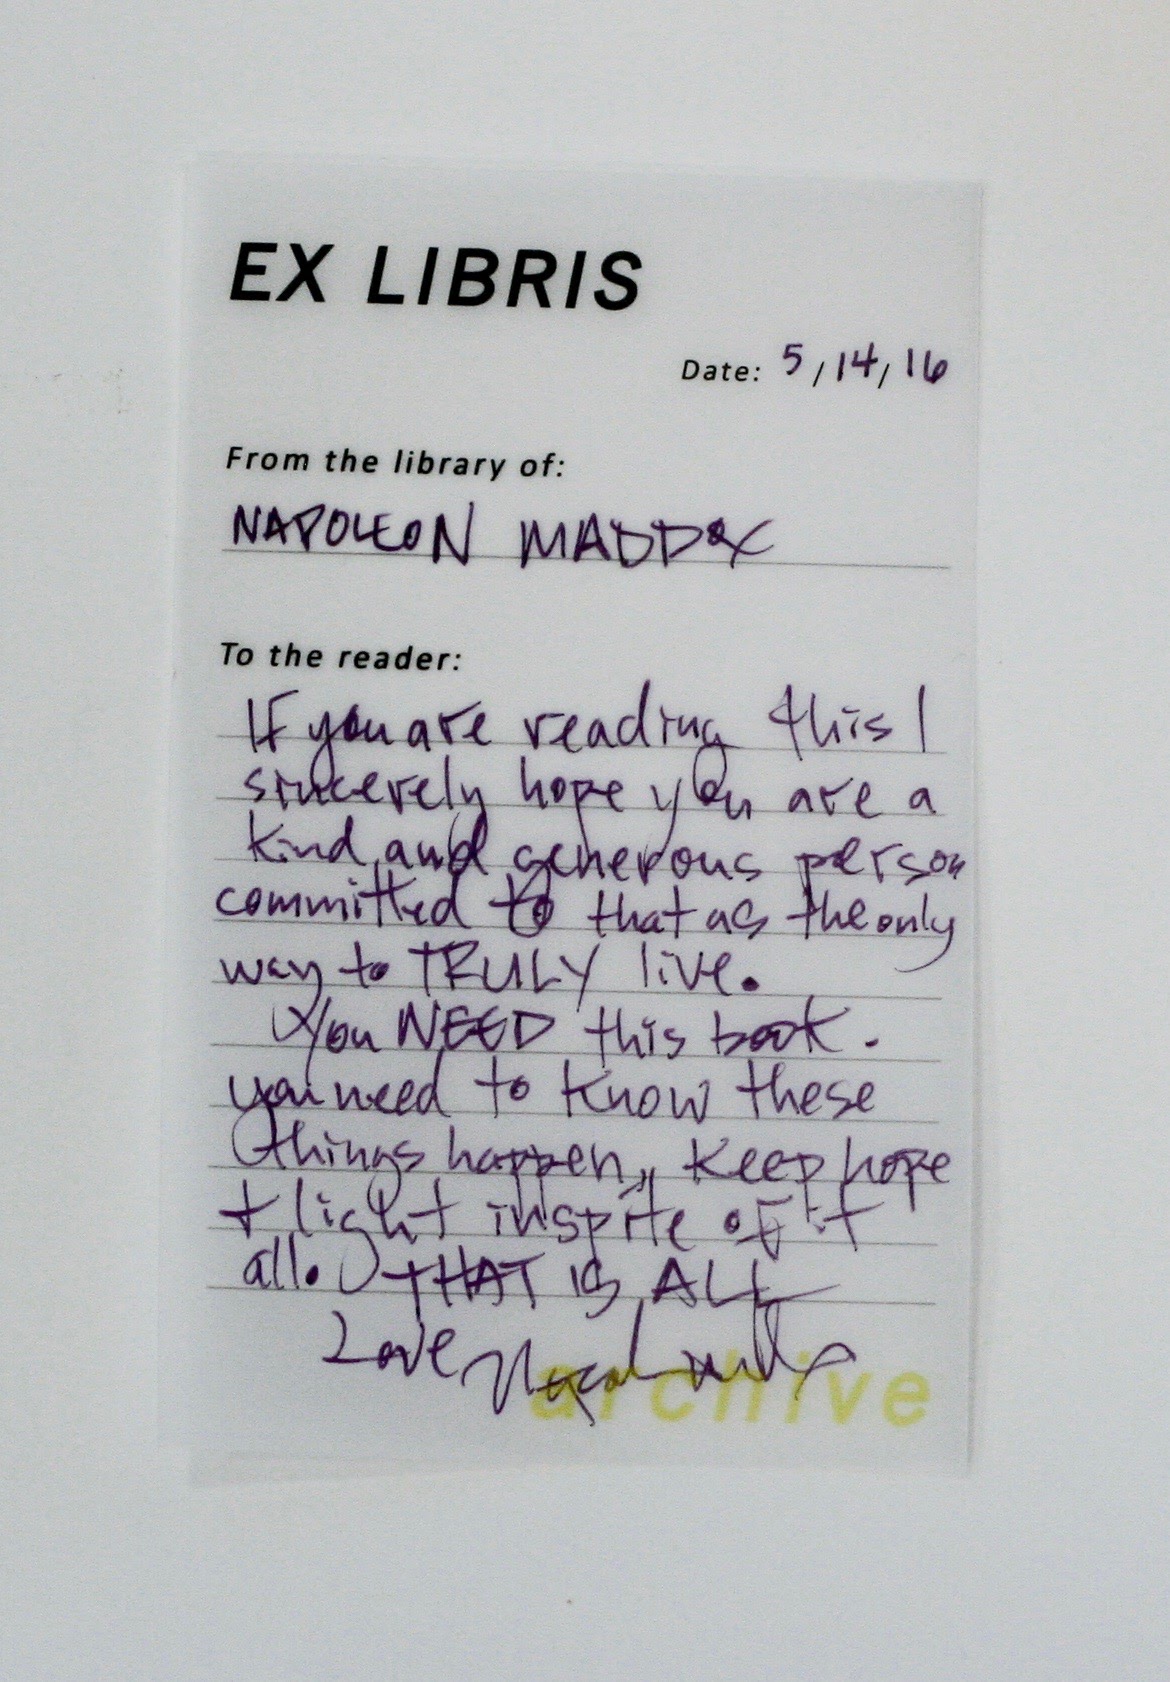 EX LIBRIS
Date: 5/14/16
From the library of:
NAPOLEON MADDOX
To the reader:
If you are reading this I
sincerely hope you are a
kind and generous person
committed to that as the only
way to TRULY live.
You NEED this book.
you need to know these
things happen, keep hope
+ light inspite of it
all. THAT IS ALL
Love
archive